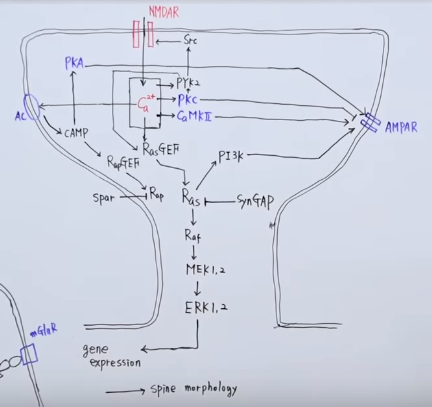 NMDAR
Src
PKA
PYK2
Ca2+
PKC
CaMKII
AC
cAMP
AMPAR
RapGEF
RasGEF
PI3K
Spar
Rap
Ras
SynGAP
Raf
MEK1,2
ERK1,2
mGluR
gene
expression
spine morphology